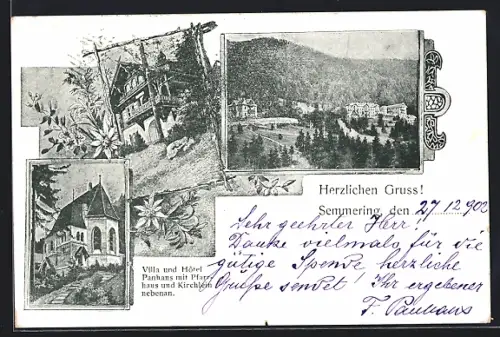 Herzlichen Gruss!
Semmering, den 27/12 902
Sehr geehrter Herr!
Danke vielmals für die
gütige Spende herzliche
Grüße sendet! Ihr ergebener
F. Panhans
Villa und Hôtel
Panhans mit Pfarr-
haus und Kirchlein
nebenan.